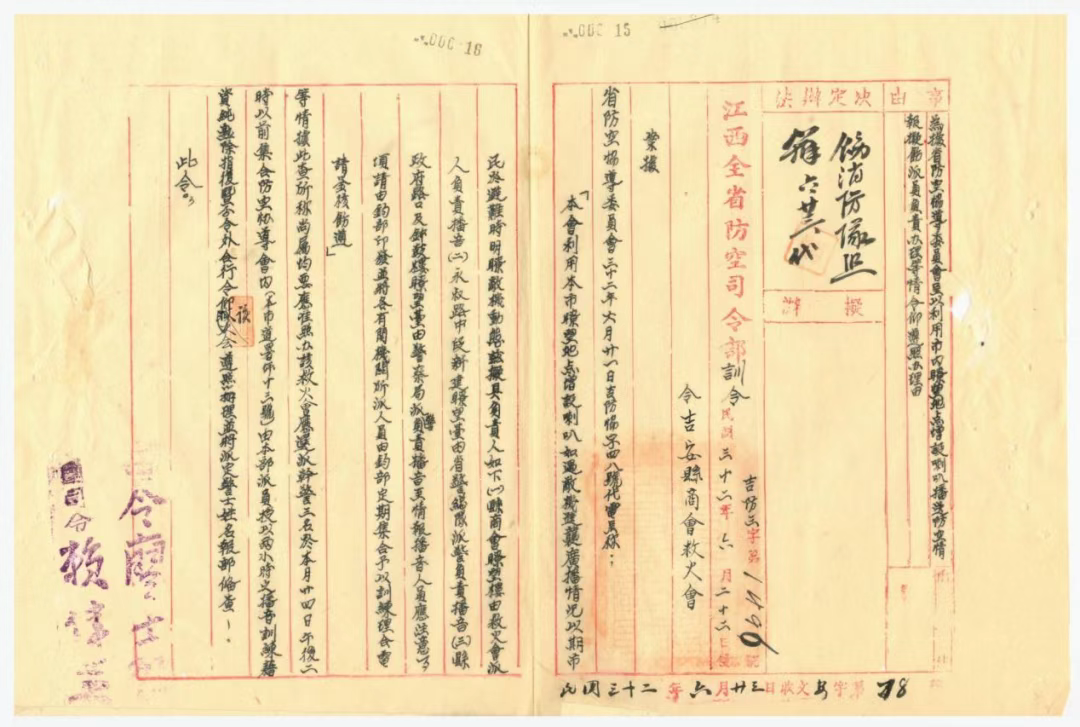 000 15
000 16
事由
決定辦法
為據省防空協導委員會呈以利用市內瞭望地点增設喇叭播送防空情
報擬飭派員負責办理等情令仰遵照办理由
飭消防隊照
辦 六廿六 代
擬辦
江西全省防空司令部訓令
民國三十二年六月二十二日
吉防三字第
令吉安縣商會救火會
案據
省防空協導委員會三十二年六月廿一日吉防協字四八號代電具稱：
「本會利用本市瞭望地点增設喇叭如遇敵機進襲廣播情況以期市
民於避難時明瞭敵機動態茲擬具負責人如下㈠縣商會瞭望樓由救火會派
人負責播音㈡永叔路中段新建瞭望臺由省警編隊派警負責播音㈢縣
政府路口及鐘鼓樓瞭望臺由警察局派警負責播音至情報播音人員應注意事
項請由鈞部印發並將各有關機關所派人員由鈞部定期集合予以訓練理合電
請鑒核飭遵」
等情據此查所稱尚屬均要應准照办該救火會應選派幹警三名於本月廿四日午後二
時以前集合防空協導會內（本市道署前十三號）由本部派員授以兩小時之播音訓練藉
資純熟除指復暨分令外合行令仰該會遵照辦理並將派定警士姓名報部俻查～。
此令。
司令廖士
副司令賴偉英
民國三十二年六月廿三日收文安字第78